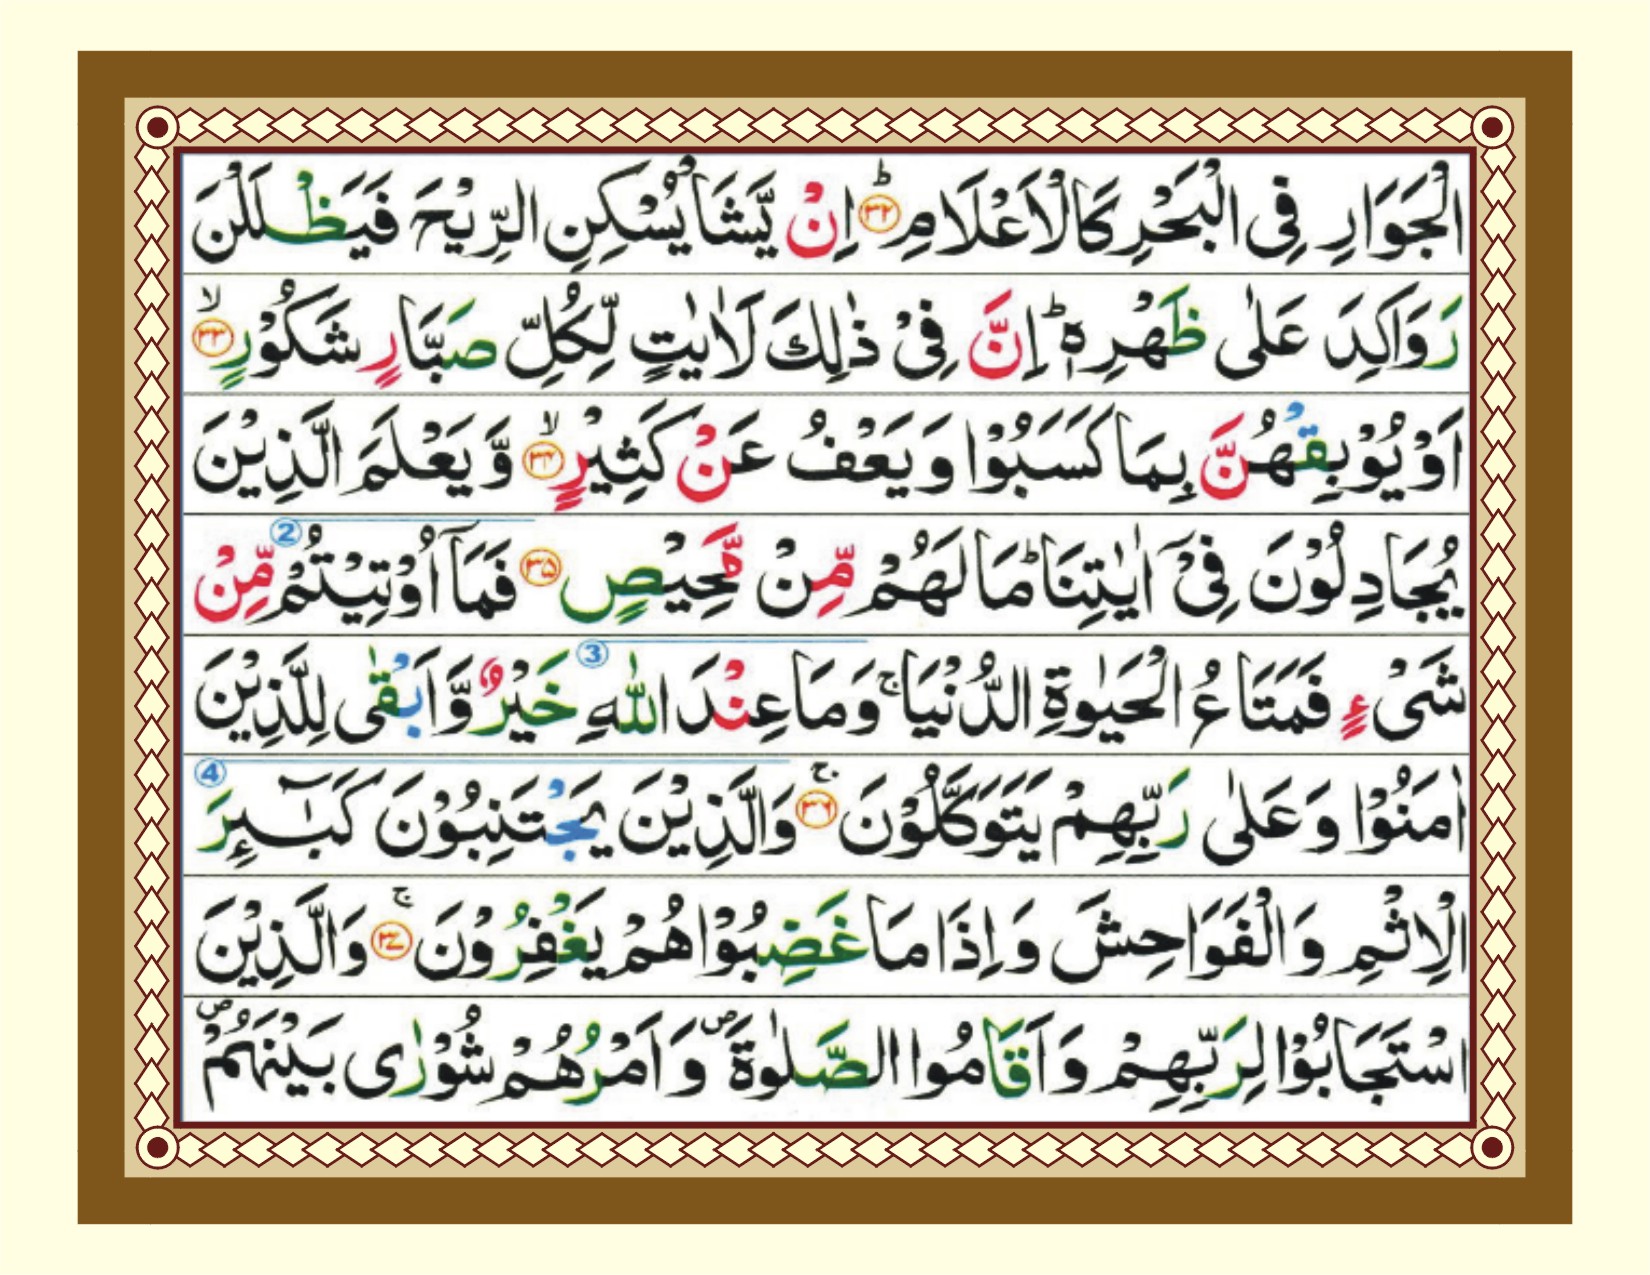 الْجَوَارِ فِى الْبَحْرِ كَالْاَعْلَامِ ؕ ﴿۳۲﴾ اِنْ يَّشَاْ يُسْكِنِ الرِّيْحَ فَيَظْلَلْنَ
رَوَاكِدَ عَلٰى ظَهْرِهٖ ؕ اِنَّ فِىْ ذٰلِكَ لَاٰيٰتٍ لِّكُلِّ صَبَّارٍ شَكُوْرٍ ۙ ﴿۳۳﴾
اَوْ يُوْبِقْهُنَّ بِمَا كَسَبُوْا وَيَعْفُ عَنْ كَثِيْرٍ ۙ ﴿۳۴﴾ وَّ يَعْلَمَ الَّذِيْنَ
يُجَادِلُوْنَ فِىْۤ اٰيٰتِنَا ؕ مَا لَهُمْ مِّنْ مَّحِيْصٍ ﴿۳۵﴾ فَمَاۤ اُوْتِيْتُمْ ② مِّنْ
شَىْءٍ فَمَتَاعُ الْحَيٰوةِ الدُّنْيَا ۚ وَمَا عِنْدَ اللّٰهِ ③ خَيْرٌ وَّاَبْقٰى لِلَّذِيْنَ
اٰمَنُوْا وَعَلٰى رَبِّهِمْ يَتَوَكَّلُوْنَ ۚ ﴿۳۶﴾ وَالَّذِيْنَ يَجْتَنِبُوْنَ كَبٰٓئِرَ ④
الْاِثْمِ وَالْفَوَاحِشَ وَاِذَا مَا غَضِبُوْا هُمْ يَغْفِرُوْنَ ۚ ﴿۳۷﴾ وَالَّذِيْنَ
اسْتَجَابُوْا لِرَبِّهِمْ وَاَقَامُوا الصَّلٰوةَ ۪ وَاَمْرُهُمْ شُوْرٰى بَيْنَهُمْ ۪